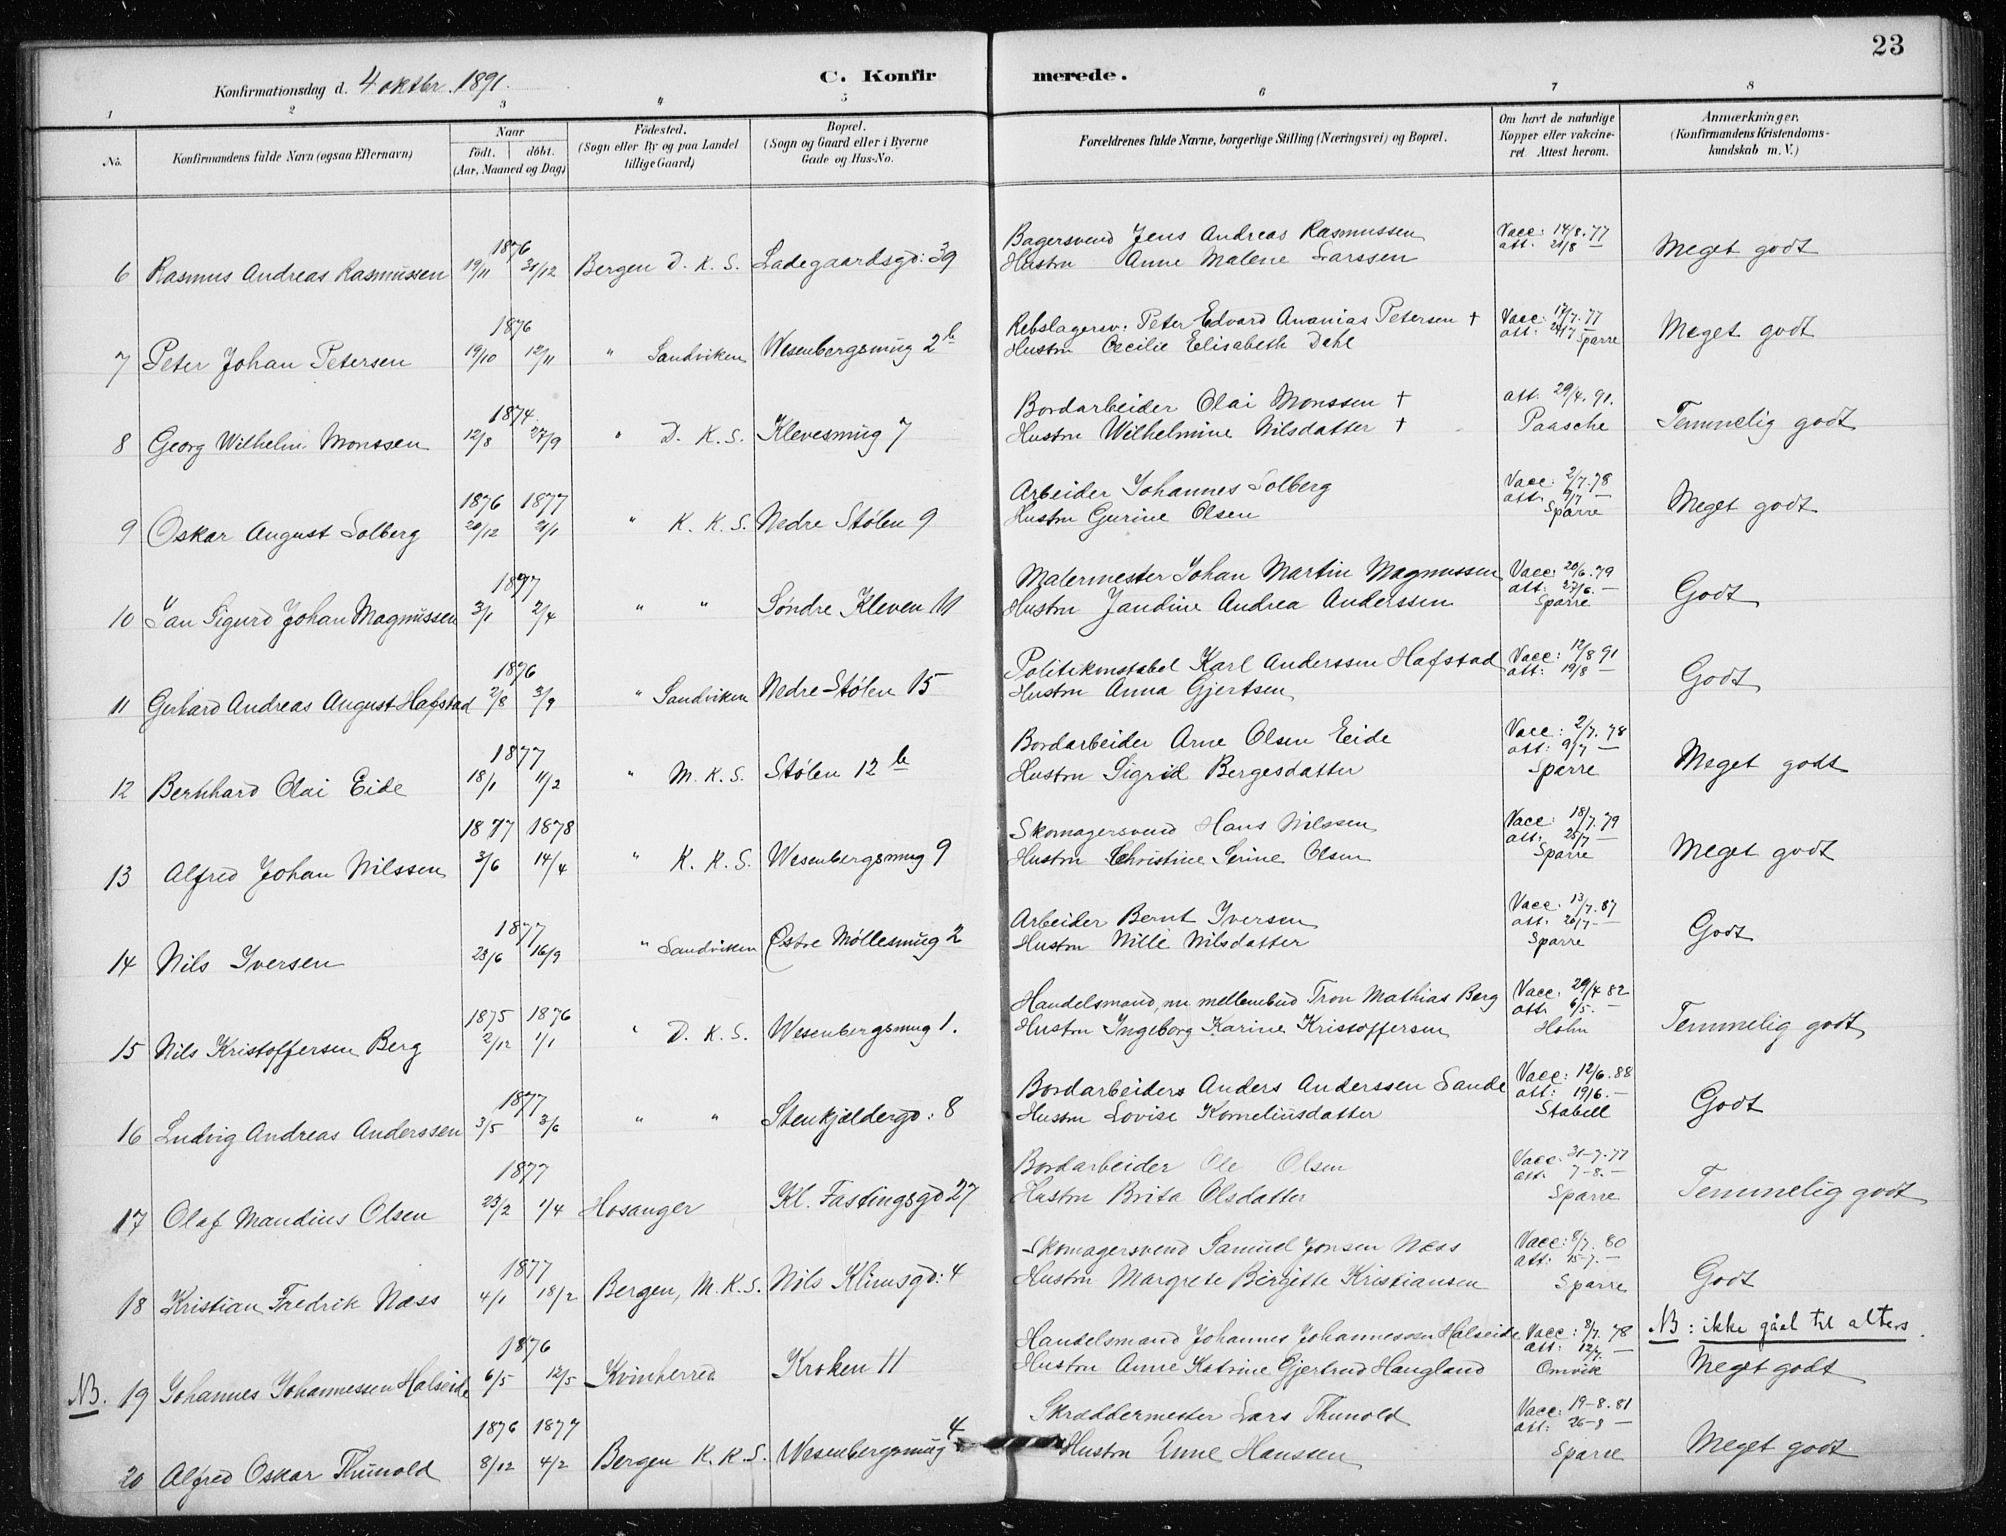 23
Konfirmationsdag d. 4 oktbr. 1891.
C. Konfirmerede.
1 2 3 " 5 6 7 8
No. Konfirmandens fulde Navn (ogsaa Efternavn) Naar födt. döbt. (Aar, Maaned og Dag) Födested. (Sogn eller By og paa Landet tillige Gaard) Bopæl. (Sogn og Gaard eller i Byerne Gade og Hus-No. Forældrenes fulde Navne, borgerlige Stilling (Næringsvei) og Bopæl. Om havt de naturlige Kopper eller vakcineret. Attest herom. Anmærkninger. (Konfirmandens Kristendomskundskab m. V.)
1876 Bagersvend Jens Andreas Rasmussen Vacc: 14/8.77
6 Rasmus Andreas Rasmussen 19/11 31/12 Bergen D. K. S. Ladegaardsgd: 39 Hustru Anne Malene Larssen att: 21/8 — Meget godt
1876 Rebslagersv: Peter Edvard Ananias Petersen + Vacc: 17/7.77
7 Peter Johan Petersen 19/10 12/11 " Sandviken Wesenbergsmug 2b Hustru Cecilie Elisabeth Dahl att: 24/7 — Sparre Meget godt
1874 Bordarbeider Olai Monssen + att. 29/4.91.
8 Georg Wilhelm Monssen 12/8 27/9 " D. K. S. Klevesmug 7 Hustru Wilhelmine Nilsdatter + Paasche Temmelig godt
1876 1877 Arbeider Johannes Solberg Vacc: 2/7.78
9 Oskar August Solberg 20/12 21/1 " K. K. S. Nedre Stølen 9 Hustru Gurine Olsen att: 9/7 — Sparre Meget godt
1877 Malermester Johan Martin Magnussen Vacc: 20/6.79
10 Jan Sigurd Johan Magnussen 3/1 2/4 " " Søndre Kleven 11 Hustru Jandine Andrea Anderssen att: 27/6.— Sparre Godt
1876 Politikonstabel Karl Anderssen Hafstad Vacc: 12/8 91
11 Gerhard Andreas August Hafstad 2/8 3/9 " Sandviken Nedre Stølen 15 Hustru Anna Gjertsen att: 19/8 — Godt
1877 Bordarbeider Arne Olsen Eide Vacc: 2/7.78
12 Bernhard Olai Eide 18/1 11/2 " M. K. S. Stølen 12 b Hustru Sigrid Bergesdatter att: 9/7 — Sparre Meget godt
1877 1878 Skomagersvend Hans Nilssen Vacc: 18/7.79
13 Alfred Johan Nilssen 3/6 14/4 " K. K. S. Wesenbergsmug 9 Hustru Christine Serine Olsen att: 25/7 — Sparre Meget godt
1877 Arbeider Bernt Iversen Vacc. 13/7.87
14 Nils Iversen 23/6 16/9 " Sandviken Østre Møllesmug 2 Hustru Nille Nilsdatter att. 20/7.— Sparre Godt
1875 1876 Handelsmand, nu mellembud Tron Mathias Berg Vacc: 29/4 82
15 Nils Kristoffersen Berg 2/12 1/1 " D. K. S. Wesenbergsmug 1. Hustru Ingeborg Karine Kristoffersen att. 6/5.— Hohn Temmelig godt
1877 Bordarbeiders Anders Anderssen Sande Vacc: 12/6.88
16 Ludvig Andreas Anderssen 3/5 3/6 " " Stenkjeldergd: 8 Hustru Lovise Korneliusdatter att: 19/6.— Stabell Godt
1877 Bordarbeider Ole Olsen Vacc. 31-7-77
17 Olaf Mandius Olsen 23/2 1/4 Hosanger Kl. Fastingsgd 27 Hustru Brita Olsdatter att. 7-8.— Sparre Temmelig godt
1877 Skomagersvend Samuel Jonsen Næss Vacc: 8/7. 80
18 Kristian Fredrik Næss 4/1 18/2 Bergen, M. K. S. Nils Klimsgd: 4 Hustru Margrete Birgitte Kristiansen att: 15-7.— Sparre Godt
1876 Handelsmand Johannes Johannessen Halseide Vacc: 8/7. 78 NB: ikke gaat til alters.
NB. 19 Johannes Johannessen Halseide 6/5 12/5 Kvinherred Kroken 11 Hustru Anne Katrine Gjertrud Haugland att: 12/7. — Omvik Meget godt
1876 1877 Skræddermester Lars Thunold Vacc: 19-8.81
20 Alfred Oskar Thunold 8/12 4/2 Bergen K. K. S. Wesenbergsmug 4 Hustru Anne Hanssen att: 26-8 — Sparre Meget godt.